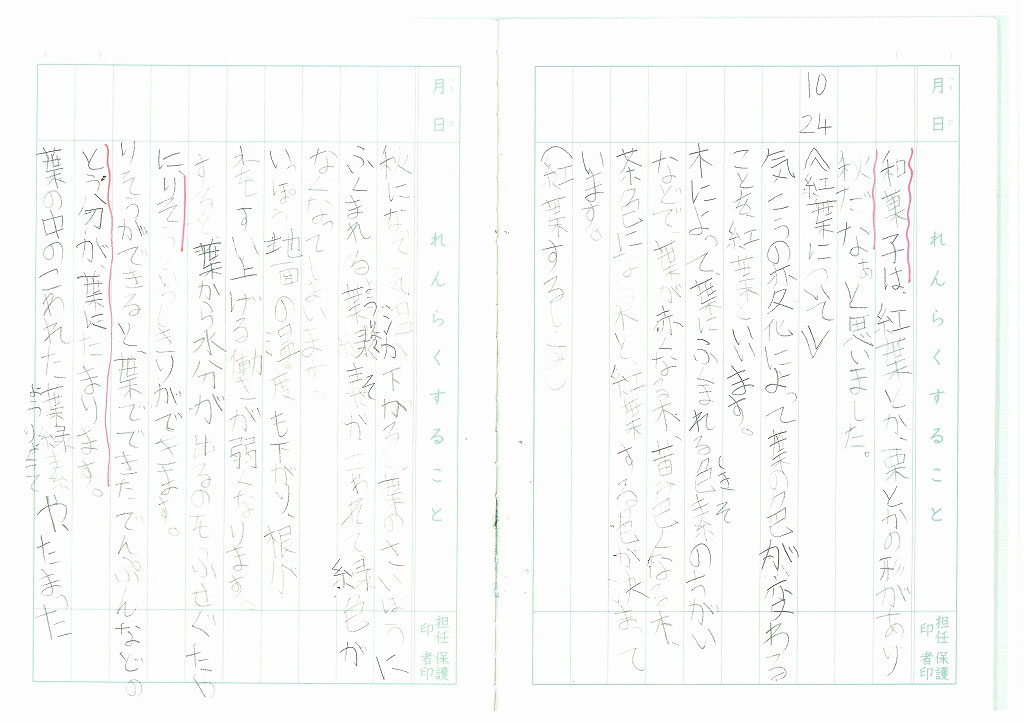 月日
れんらくすること
担任印
保護者印
和菓子は、紅葉とか、栗とかの形があり
秋だなぁと思いました。
10 24
〈紅葉について〉
気こうの変化によって葉の色が変わる
ことを紅葉といいます。
木によって、葉にふくまれる色素のちがい
しきそ
などで、葉が赤くなる木、黄色くなる木、
茶色になる木と、紅葉する色が決まって
います。
(紅葉するしくみ)
月日
れんらくすること
担任印
保護者印
秋になって気温が下がると、葉のさいぼうに
ふくまれる葉緑素がこわれて緑色が
なくなってしまいます。
いっぽう地面の温度も下がり、根が
水をすい上げる働きが弱くなります。
すると、葉から水分が出るのもふせぐため
に、りそうというしきりができます。
りそうができると、葉でできたでんぷんなどの
とう分が、葉にたまります。
葉の中のこわれた葉緑素や、たまった
ようりょくそ